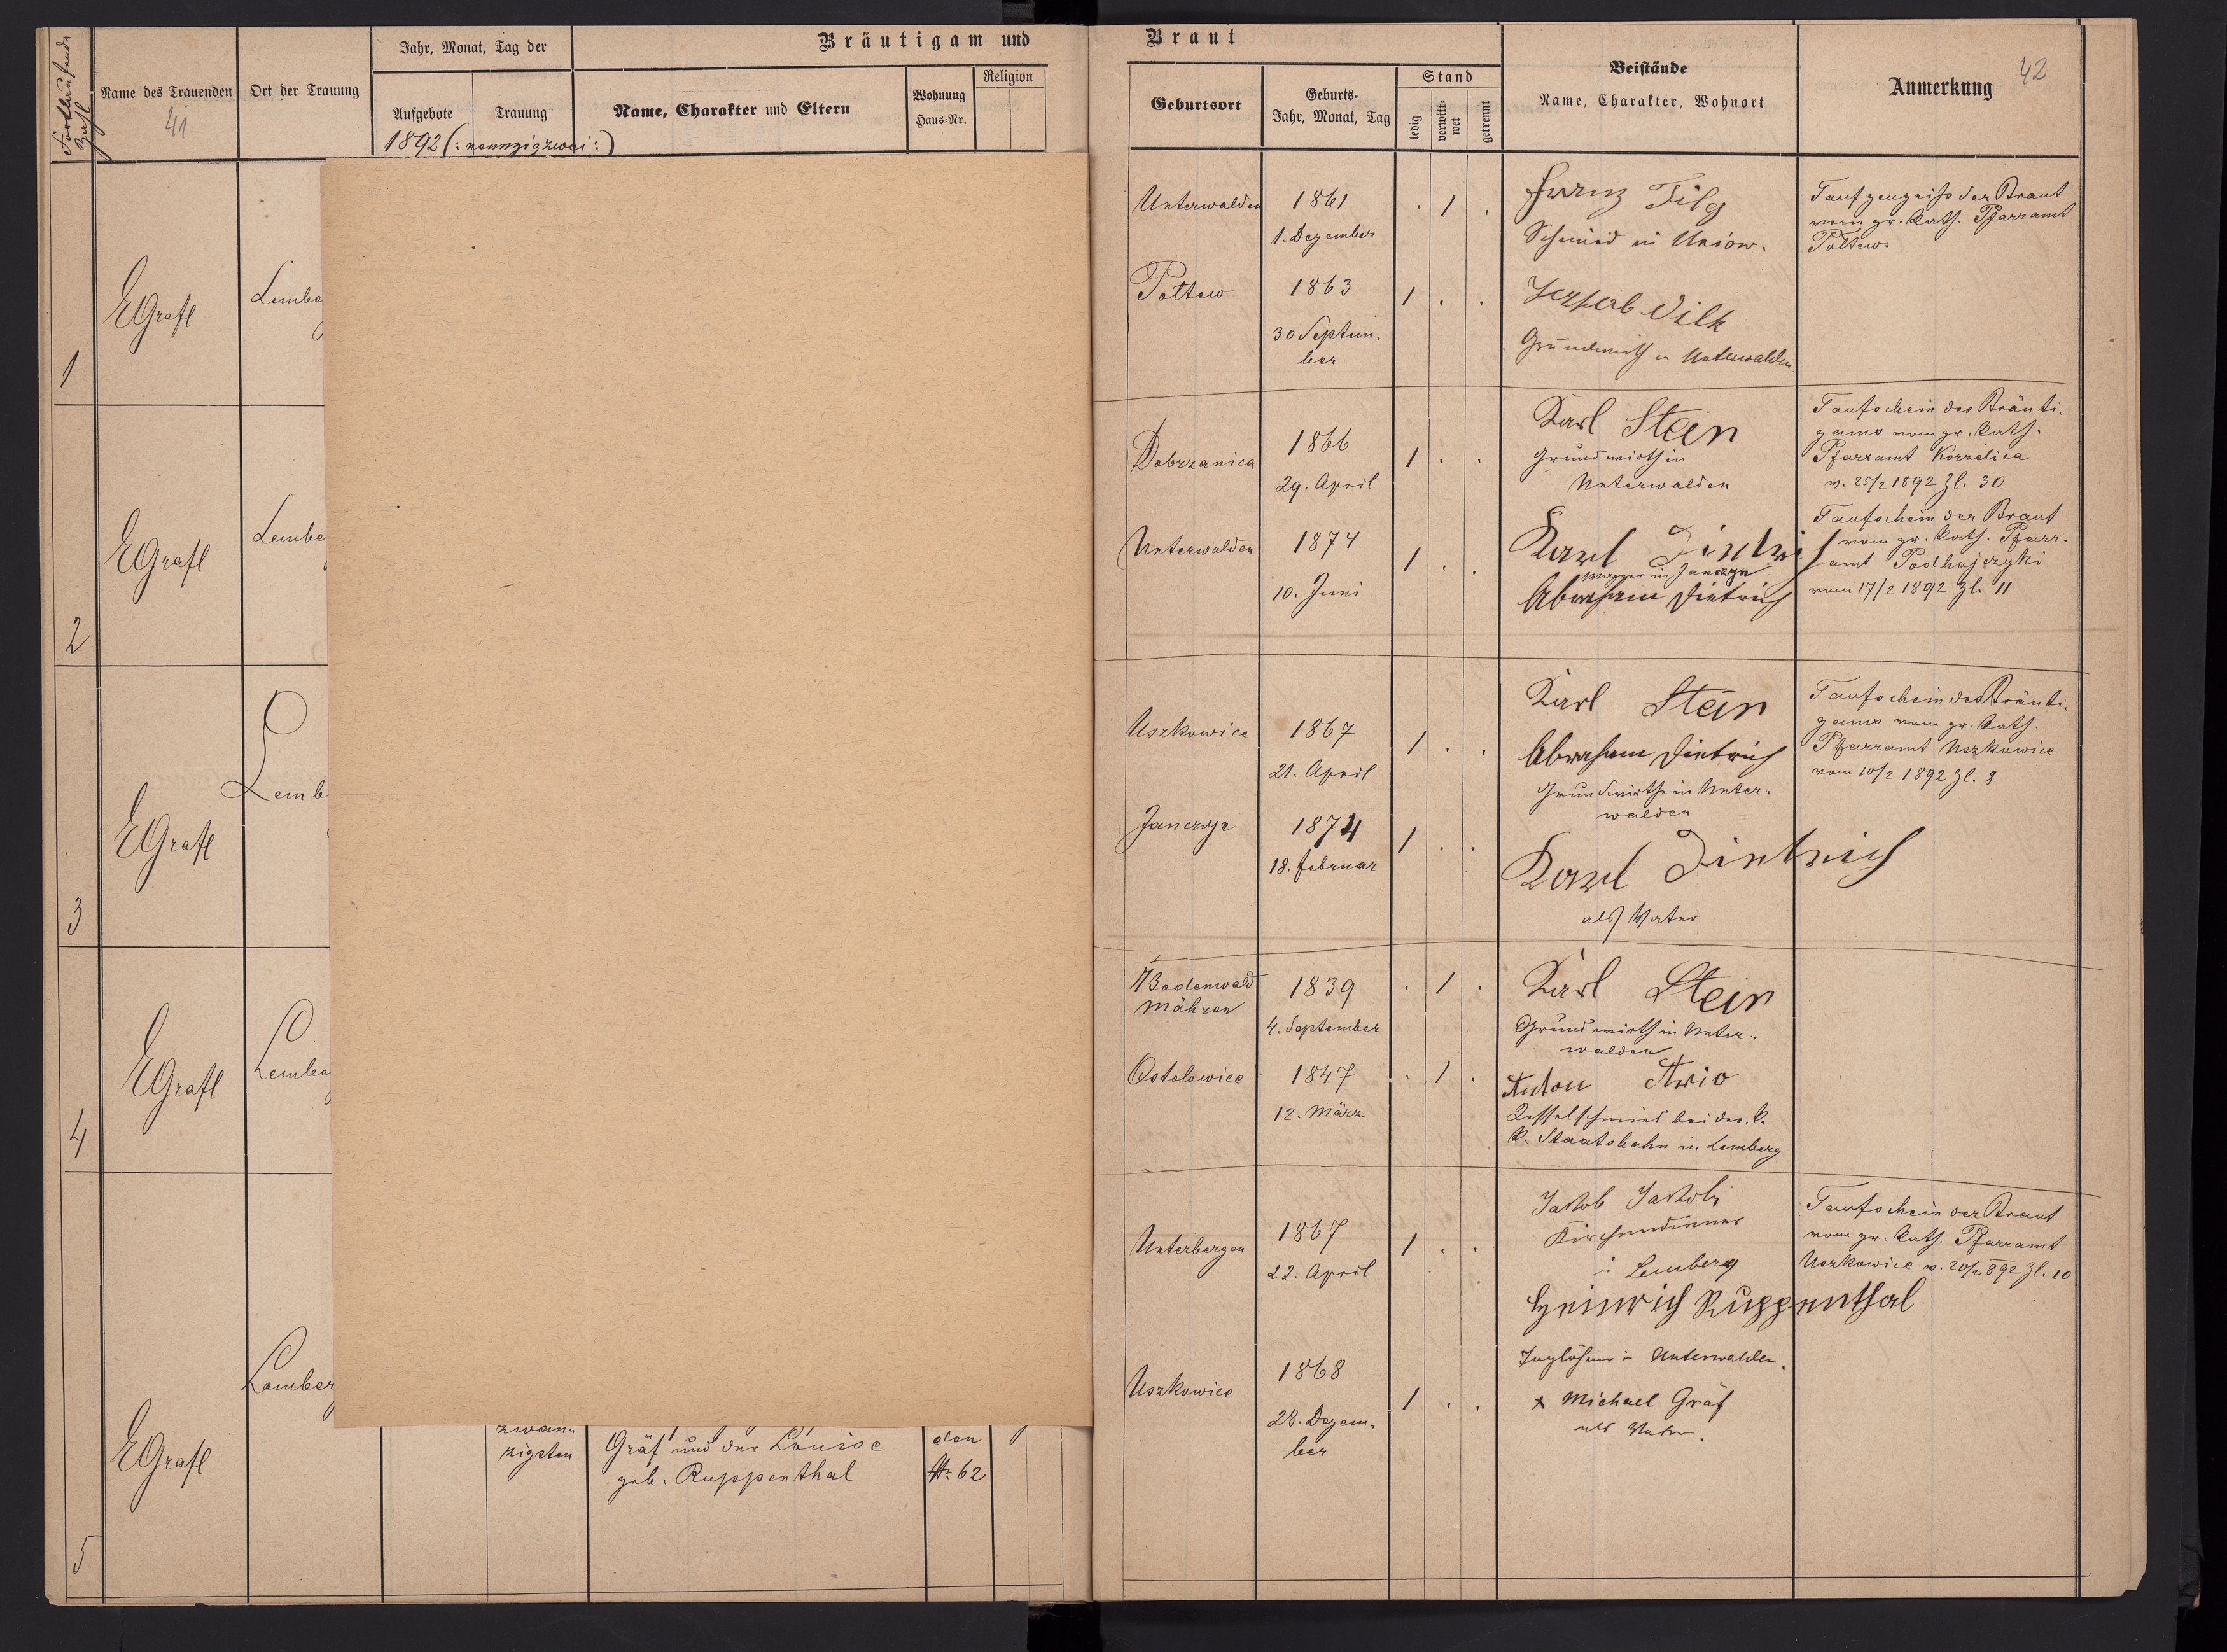 Fortlaufende
Zahl
Name des Trauenden
41
Ort der Trauung
Jahr, Monat, Tag der
Aufgebote
Trauung
1892 (: neunzigzwei :)
Bräutigam und
Name, Charakter und Eltern
Wohnung
Haus-Nr.
Religion
1
EGrafl
2
EGrafl
3
EGrafl
4
EGrafl
5
EGrafl
Lember
zwan-
zigsten
Gräf und der Louise
geb. Ruppenthal
den
Nr. 62
Braut
Geburtsort
Geburts-
Jahr, Monat, Tag
Stand
ledig
verwitt-
wet
getrennt
Beistände
Name, Charakter, Wohnort
Anmerkung
42
Unterwalden
1861
1. Dezember
. 1 .
Franz Filg
Schmied in Uniow.
Taufzeugniss der Braut
vom gr. kath. Pfarramt
Poltew.
Poltew
1863
30 Septem-
ber
1 . .
Jakob Dilk
Grundwirth in Unterwalden
Dobrzanica
1866
29. April
1 . .
Karl Stein
Grundwirth in
Unterwalden
Taufschein des Bräuti-
gams vom gr. kath.
Pfarramt Korzelica
v. 25/2 1892 Zl. 30
Unterwalden
1874
10. Juni
1 . .
Karl Dietrich
in Janczyn
Abraham Dietrich
Taufschein der Braut
vom gr. kath. Pfarr-
amt Podhajczyki
vom 17/2 1892 Zl. 11
Uszkowice
1867
21. April
1 . .
Karl Stein
Abraham Dietrich
Grundwirthe in Unter-
walden
Taufschein des Bräuti-
gams vom gr. kath.
Pfarramt Uszkowice
vom 10/2 1892 Zl. 8
Janczyn
1874
18. Februar
1 . .
Karl Dietrich
als Vater
Bodenwald
Mähren
1839
4. September
. 1 .
Karl Stein
Grundwirth in Unter-
walden
Ostalowice
1847
12. März
. 1 .
Anton
Kesselschmied bei der k.
k. Staatsbahn in Lemberg
Unterbergen
1867
22. April
1 . .
Jakob Jakobi
Kirchendiener
in Lemberg
Heinrich Ruppenthal
Taglöhner in Unterwalden.
Taufschein der Braut
vom gr. kath. Pfarramt
Uszkowice v. 20/2 892 Zl. 10
Uszkowice
1868
28. Dezem-
ber
1 . .
x Michael Gräf
als Vater.